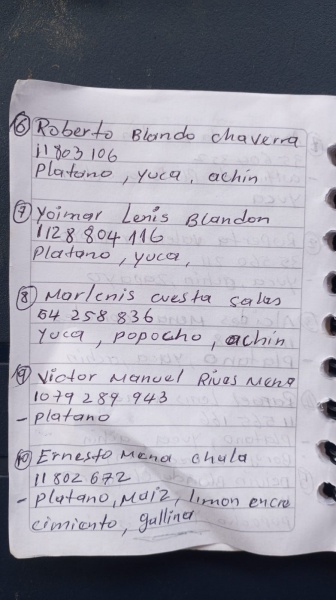 6 Roberto Blando chaverra
11803106
Platano, yuca, achin
7 Yoimar Lenis Blandon
1128 804 116
Platano, yuca,
8 Marlenis cuesta salas
54 258 836
yuca, popocho, achin
9 Victor Manuel Rivas Mena
1079 289 943
- platano
10 Ernesto Mena chala
11 802 672
- platano, Maiz, limon encre
cimiento, gallina